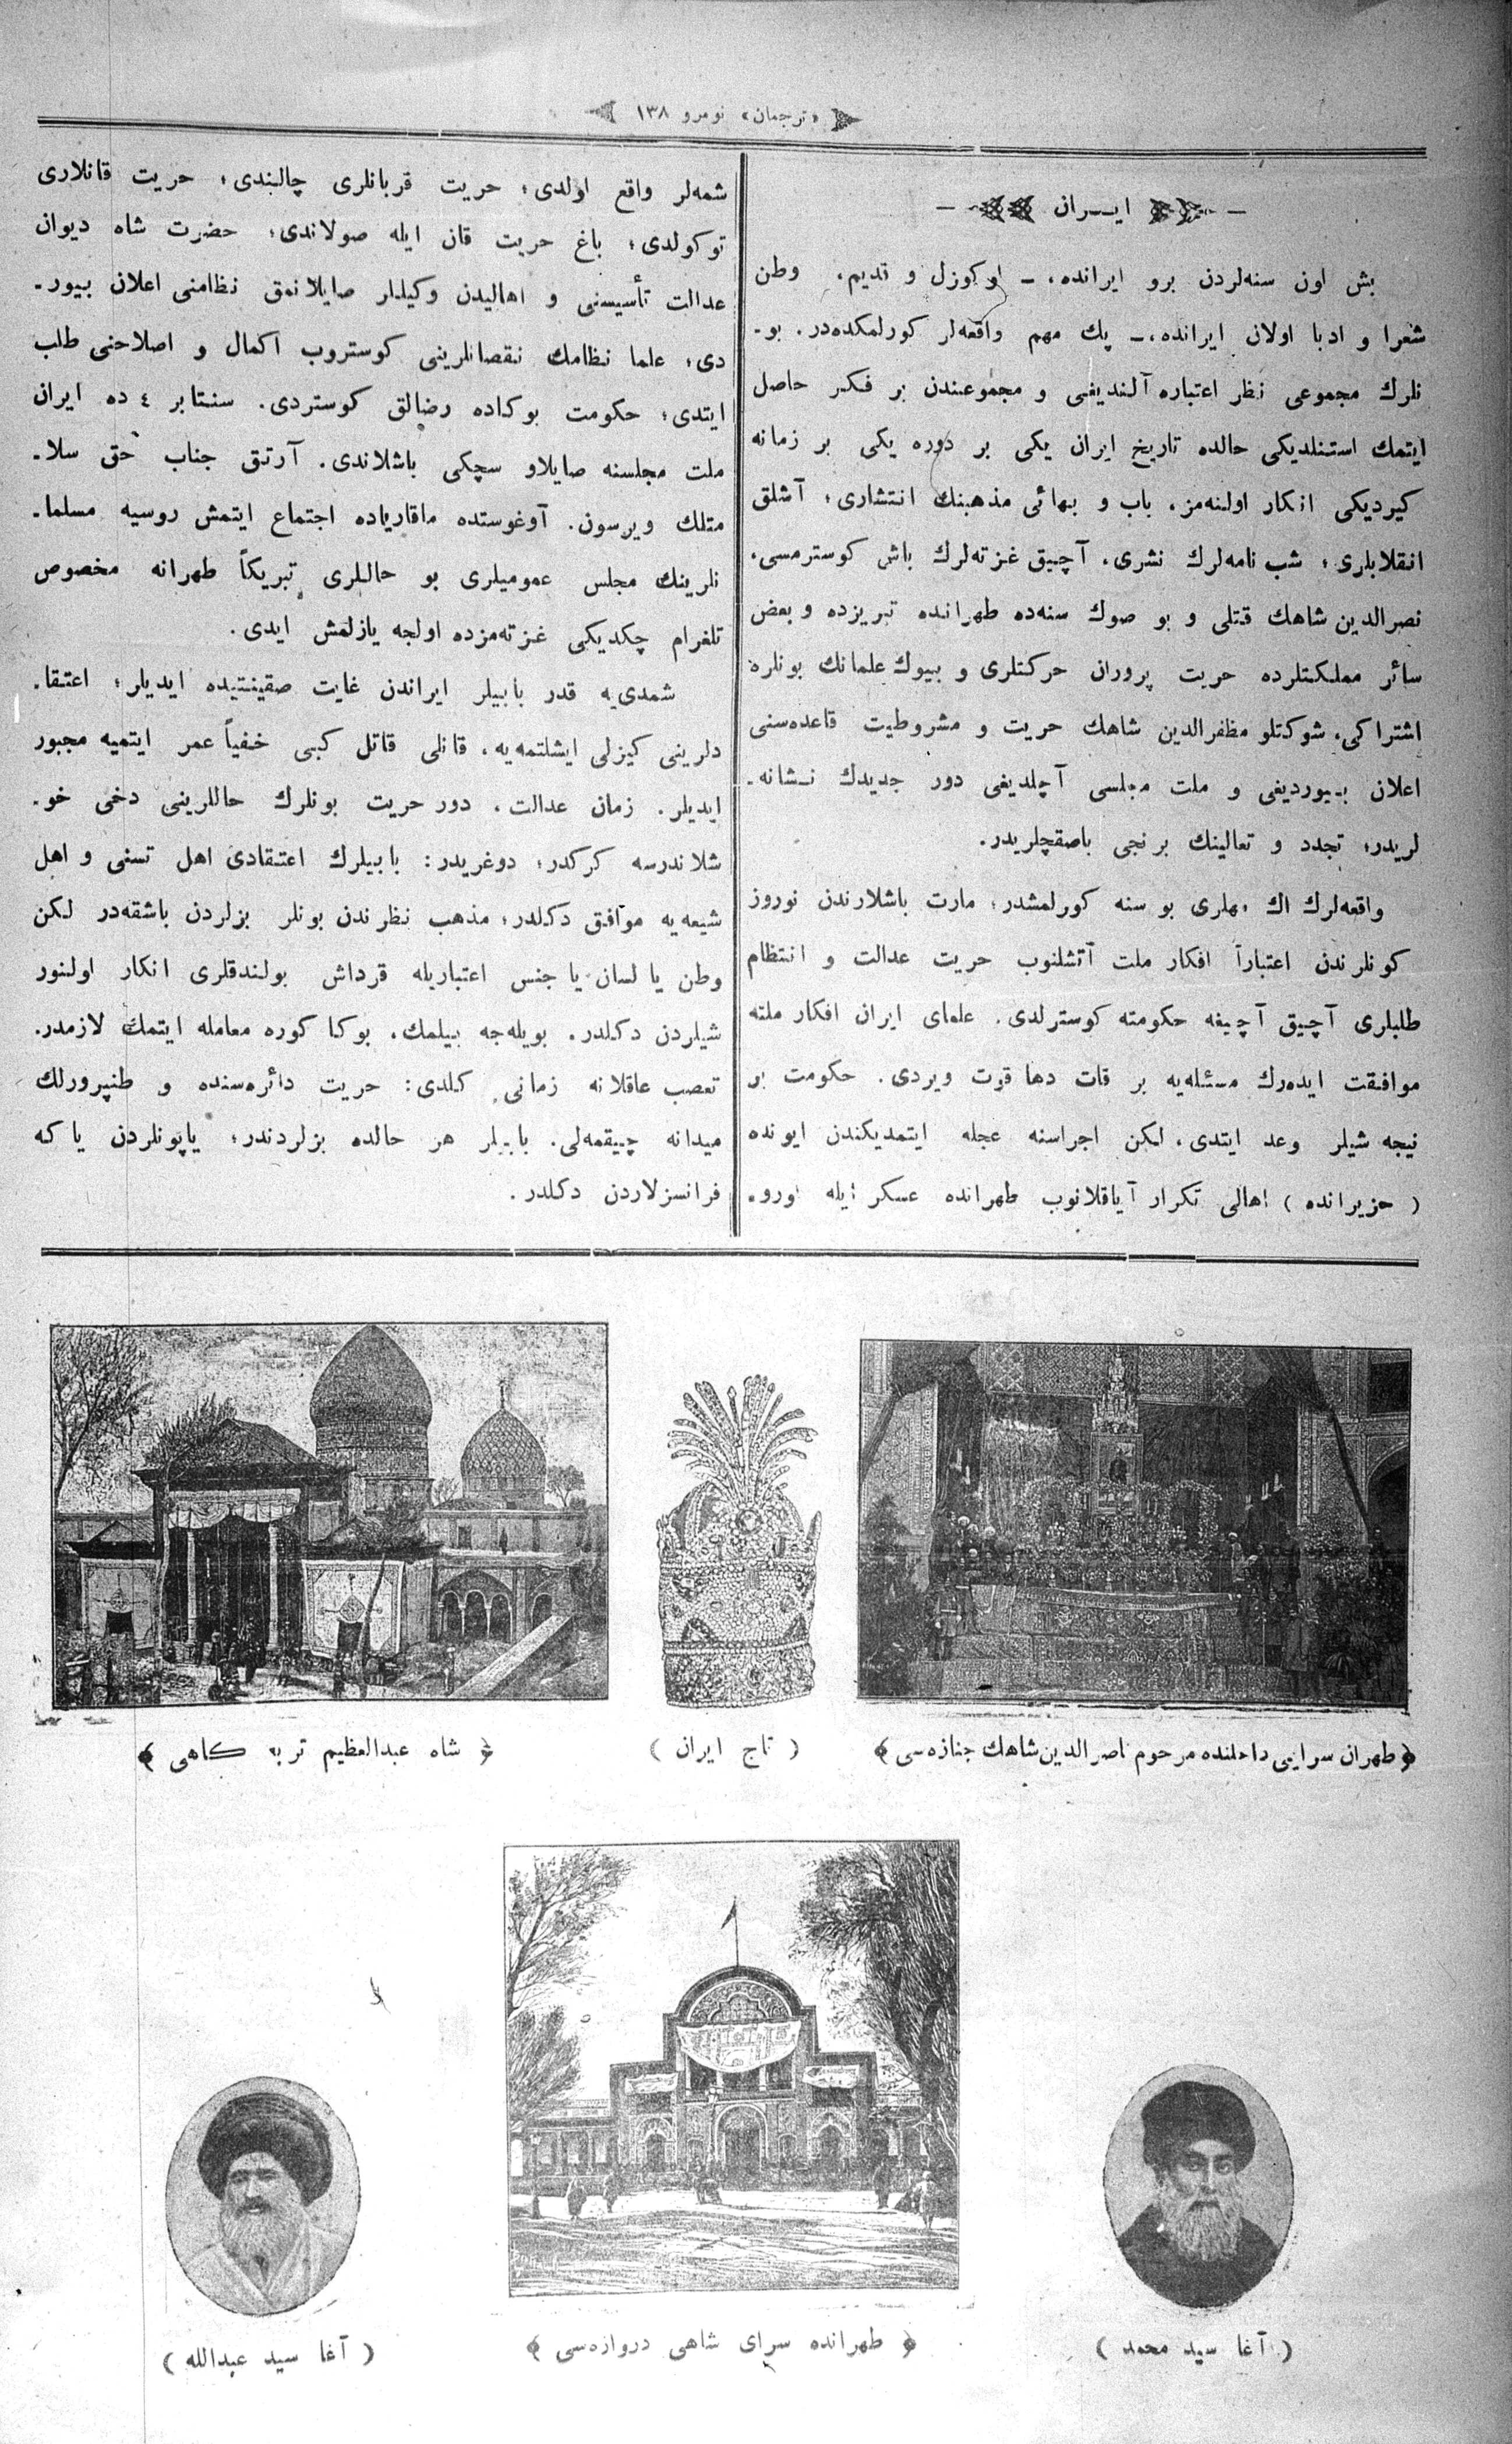 «ترجمان» نومرو ١٣٨
ایــران
بش اون سنه‌لردن برو ایرانده، ـ اوكوزل و قدیم، وطن
شعرا و ادبا اولان ایرانده،ـ پك مهم واقعه‌لر كورلمكده‌در. بو-
نلرك مجموعی نظر اعتباره آلندیغی و مجموعندن بر فكر حاصل
ایتمك استنلدیكی حالده تاریخ ایران یكی بر دوره یكی بر زمانه
كیردیكی انكار اولنه‌مز، باب و بهائی مذهبنك انتشاری؛ آشلق
انقلابلری؛ شب نامه‌لرك نشری، آچیق غزته‌لرك باش كوسترمسی،
نصرالدین شاهك قتلی و بو صوك سنه‌ده طهرانده تبریزده و بعض
سائر مملكتلرده حریت پروران حركتلری و بیوك علمانك بونلره
اشتراكی، شوكتلو مظفرالدین شاهك حریت و مشروطیت قاعده‌سنی
اعلان بیوردیغی و ملت مجلسی آچلدیغی دور جدیدك نشانه-
لریدر؛ تجدد و تعالینك برنجی باصقچلریدر.
واقعه‌لرك اك مهلری بو سنه كورلمشدر؛ مارت باشلارندن نوروز
كونلرندن اعتباراً افكار ملت آتشلنوب حریت عدالت و انتظام
طلبلری آچیق آچیغه حكومته كوسترلدی. علمای ایران افكار ملته
موافقت ایده‌رك مسئله‌یه بر قات دها قوت ویردی. حكومت بر
نیجه شیلر وعد ایتدی، لكن اجراسنه عجله ایتمدیكندن ایونده
( حزیرانده ) اهالی تكرار آیاقلانوب طهرانده عسكر ایله اورو-
شمه‌لر واقع اولدی؛ حریت قربانلری چالندی؛ حریت قانلاری
توكولدی؛ باغ حریت قان ایله صولاندی؛ حضرت شاه دیوان
عدالت تأسیسنی و اهالیدن وكیللر صایلانمق نظامنی اعلان بیور-
دی؛ علما نظامك نقصانلرینی كوستروب اكمال و اصلاحنی طلب
ایتدی؛ حكومت بوكاده رضالق كوستردی. سنتابر ٤ ده ایران
ملت مجلسنه صایلاو سچكی باشلاندی. آرتق جناب حق سلا-
متلك ویرسون. آوغوستده ماقاریاده اجتماع ایتمش روسیه مسلما-
نلرینك مجلس عمومیلری بو حاللری تبریكاً طهرانه مخصوص
تلغرام چكدیكی غزته‌مزده اولجه یازلمش ایدی.
شمدی‌یه قدر بابیلر ایراندن غایت صقینتیده ایدیلر؛ اعتقا-
دلرینی كیزلی ایشلتمه‌یه، قانلی قاتل كبی خفیاً عمر ایتمیه مجبور
ایدیلر. زمان عدالت، دور حریت بونلرك حاللرینی دخی خو-
شلاندرسه كركدر؛ دوغریدر: بابیلرك اعتقادی اهل تسنی و اهل
شیعه‌یه موافق دكلدر؛ مذهب نظرندن بونلر بزلردن باشقه‌در لكن
وطن یا لسان یا جنس اعتباریله قرداش بولندقلری انكار اولنور
شیلردن دكلدر. بویله‌جه بیلمك، بوكا كوره معامله ایتمك لازمدر.
تعصب عاقلانه زمانی كلدی: حریت دائره‌سنده و طنپرورلك
میدانه چیقمه‌لی. بابیلر هر حالده بزلردندر؛ یاپونلردن یا كه
فرانسزلاردن دكلدر.
﴿ طهران سرایی داخلنده مرحوم ناصرالدین شاهك جنازه‌سی ﴾
( تاج ایران )
﴿ شاه عبدالعظیم تربه كاهی ﴾
( آغا سید محمد )
﴿ طهرانده سرای شاهی دروازه‌سی ﴾
( آغا سید عبدالله )